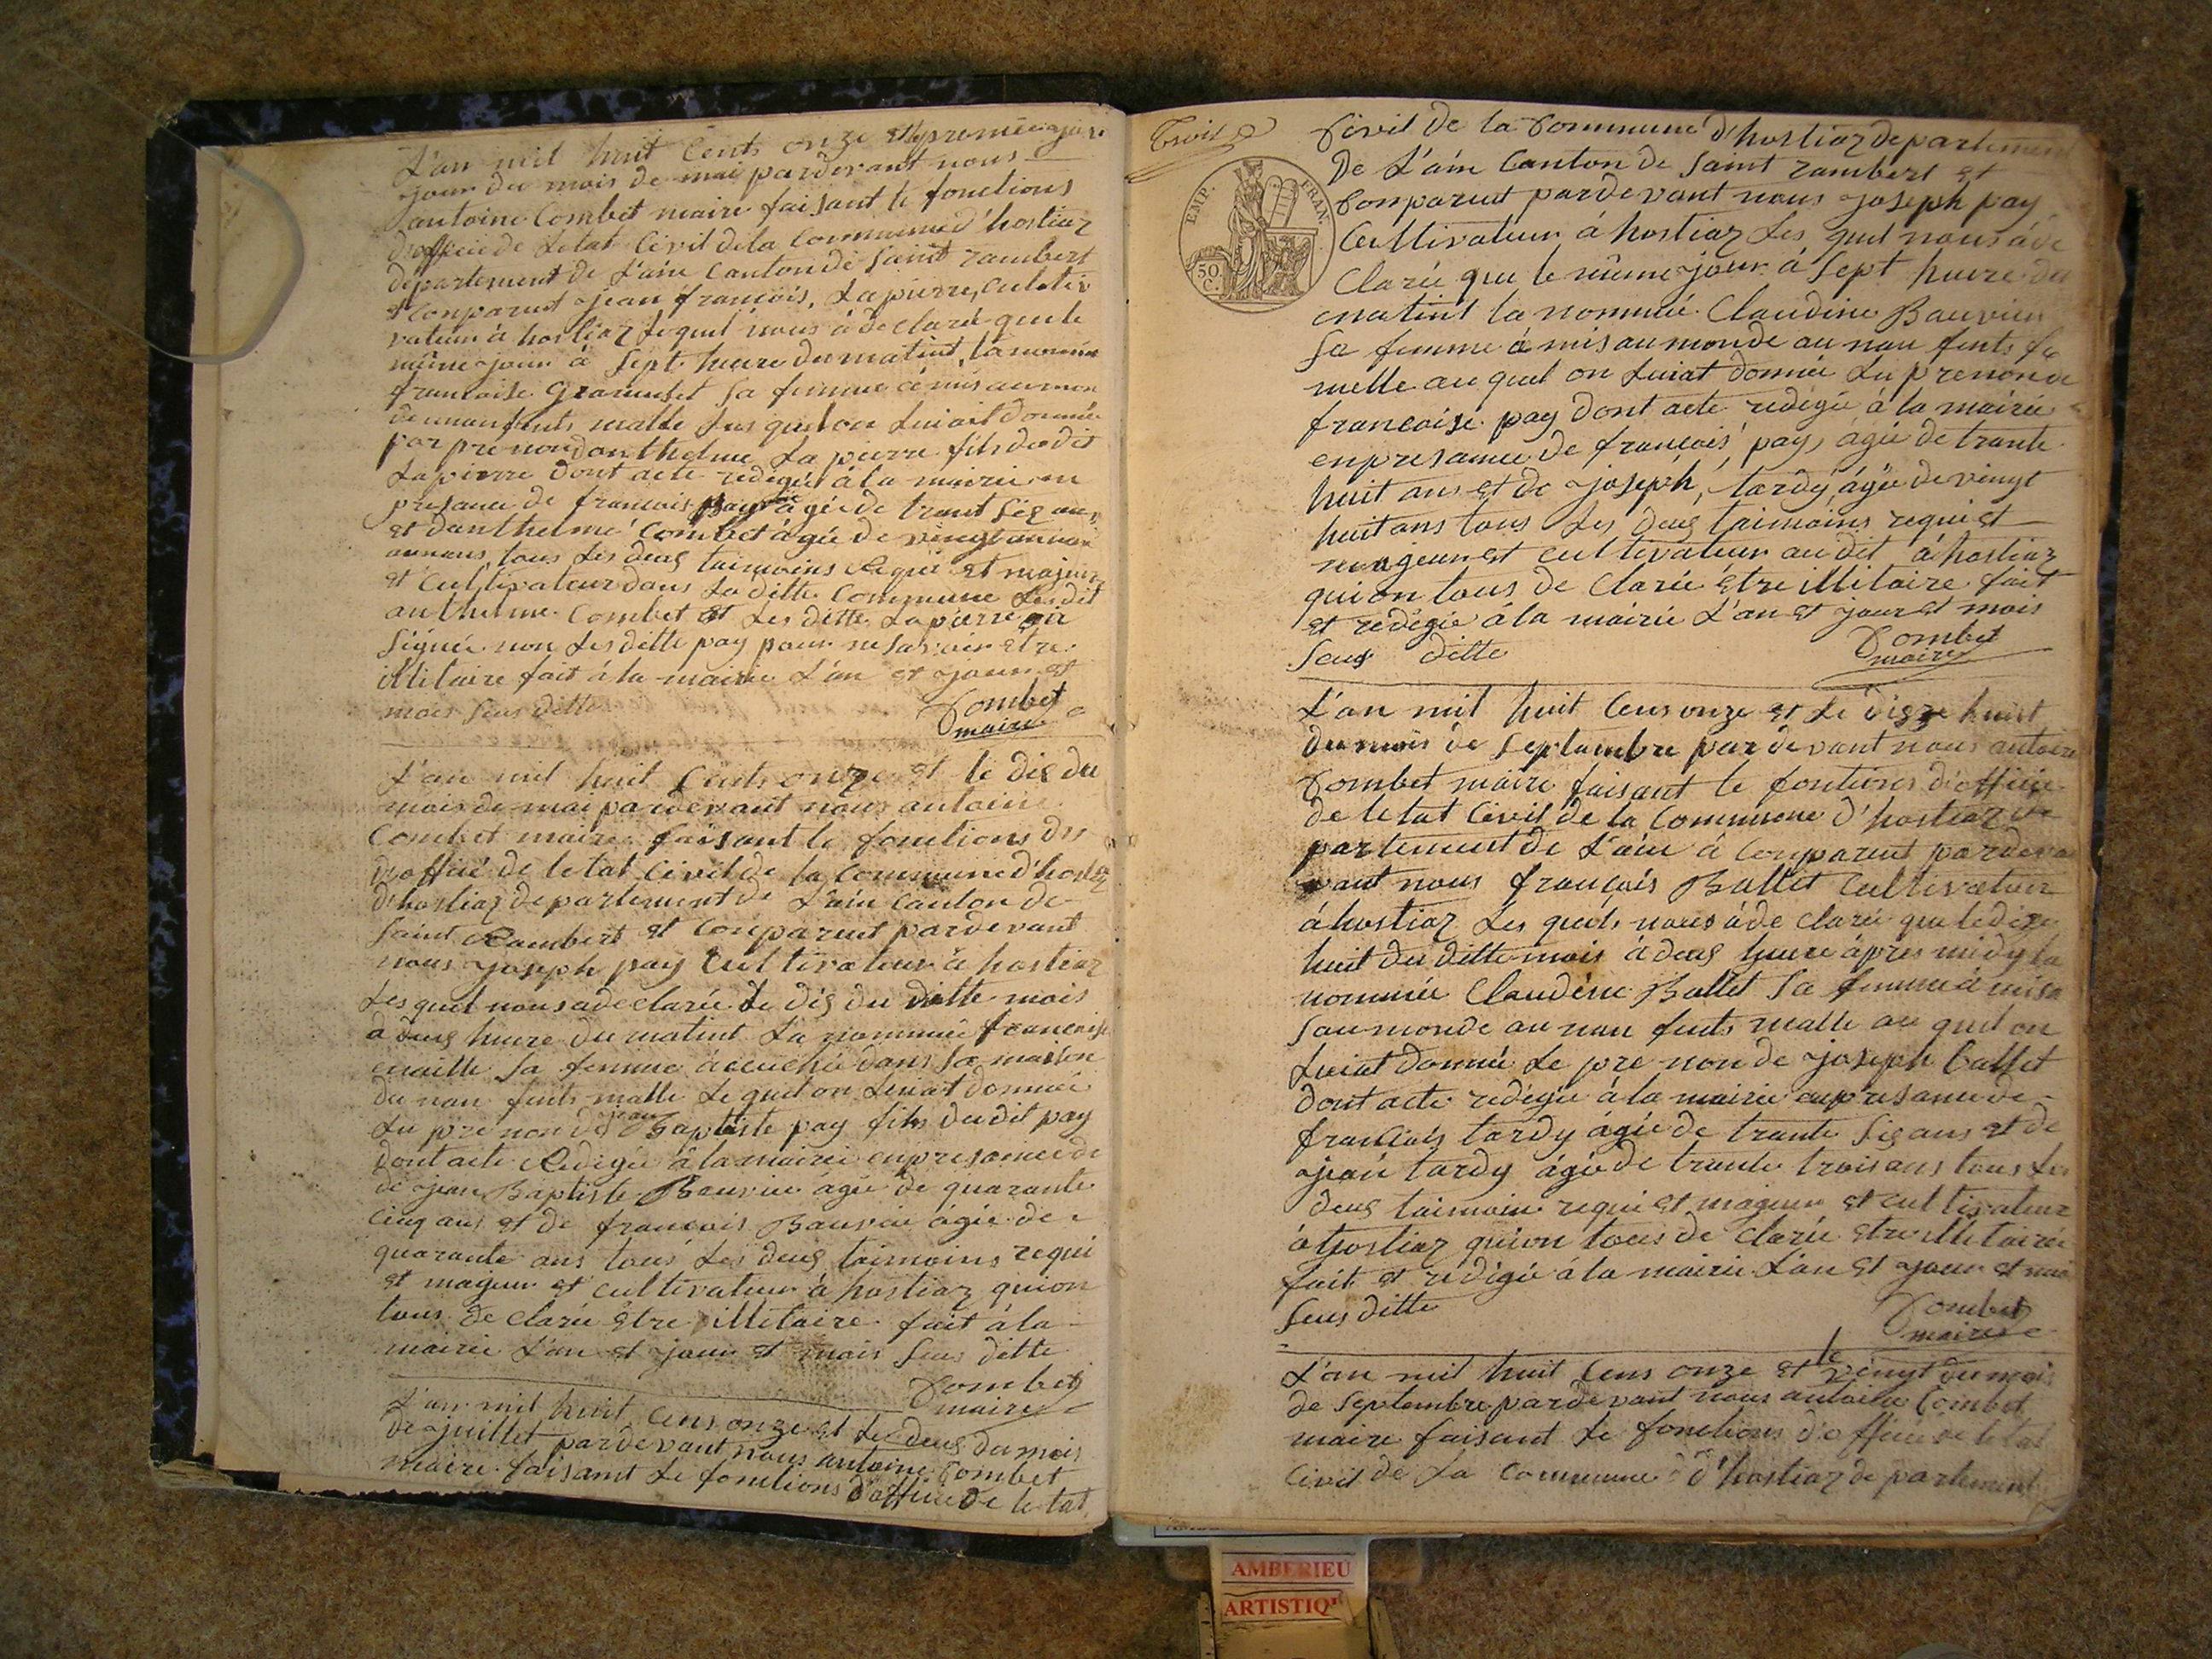 L'an mil huit Cents onze et premier
jour du mois de mai pardevant nous
antoine Combet maire faisant le fonctions
d'officié de letat Civil dela Commune d'hostiaz
département de L'ain Canton de Saint rambert
et Conparut jean francois, Lapierre, Culeti
vateur à hostiaz Lequel nous à de Claré que le
même jour à Sept heure du matint, la nommée
francoise Gramuset sa femme à mis aumon
de unanfents malle Les quel on Luiait donnée
par pre non danthelme La pierre fils dudit
Lapierre dont acte redegée à la mairie en
presance de francois pay agée de trant Sis ans
et danthelme Combet agée de vingt
ans tous Les deus taimoins Requi et majeur
et Cultivateur dans La ditte Commune Les dit
anthelme Combet et Les ditte Lapierre on
Signée non Les ditte pay pour ne savoir etre
illitaire fait à la mairie L'an et jour et
mois Seus ditte
Combet
maire
L'an mil huit Cents onze et le dis du
mois de mai pardevant nous antoine
Combet maire faisant le fonctions de
d'offié de letat Civil de la Commune d'hostiz
d'hostiaz departement de L'ain Canton de
Saint Rambert et Conparut pardevant
nous joseph pay Cultivateur à hostiaz
Les quel nous a de clarée le dis du ditte mois
a deus heure du matint La nommée francoise
maille sa femme àccuchée dans Sa maison
du nan fents malle Le quel on Luiat donnée
Lu pre non de jean Baptiste pay fils du dit pay
dont acte Redigée à la mairie enpresance de
de jean Baptiste Bauvin agée de quarante
Cinq ans et de francois Bauvin agée de
quarante ans tous Les deus taimoins requi
et mageur et cultivateur à hostiaz quion
tous de Clarée être illitaire fait à la
mairie L'an et jour et mois Seus ditte
Combet
maire
L'an mil huit Cens onze et Le deus du mois
de juillet pardevant nous antoine Combet
maire faisant Le fonctions d'offiié de letat
Civil de la Commune d'hostiaz departement
De L'ain Canton de Saint rambert et
Conparut pardevant nous joseph pay
Cultivateur à hostiaz Les quel nous à dé
Clarée que le même jour à Sept heure du
matint la nommée Claudine Bauvin
Sa femme à mis au monde au nan fents fe
melle au quel on Luiat donnée Lu prenon de
francoise pay dont acte redegée à la mairie
enpresance de francois pay àgée de trante
huit ans et de joseph tardy àgée de vingt
huit ans tous Les deus taimoins requi et
mageur et cultivateur au dit à hostiaz
quion tous de Clarée être illitaire fait
et redégée à la mairie L'an et jour et mois
Seus ditte
Combet
maire
L'an mil huit Cens onze et Le dis huit
du mois de Septambre pardevant nous antoine
Combet maire faisant le fontions d'officié
de letat Civil de la Commune d'hostiaz de
partement de L'ain à Conparut pardeva
vant nous françois Ballet Cultivateur
à hostiaz Les quels nous à de clarée que le dix
huit du ditte mois à deus heure après midy la
nommée Claudine Ballet Sa femme à mis a
Sau monde au nan fents malle au quel on
Luiat donnée Le pre non de joseph ballet
dont acte redégée à la mairie enpresance de
francois tardy àgée de trante Sis ans et de
jean tardy àgée de trante trois ans tous Les
deus taimoin requi et mageur et cultivateur
à hostiaz quion tous de Clarée etre illitairée
fait et redigée à la mairie L'an et jour et moi
Seus ditte
Combet
maire
L'an mil huit Cens onze et le vingt du mois
de Septembre pardevant nous antoine Combet
maire faisant Le fonctions d'offié de letat
Civil de La Commune d'hostiaz departement
EMP. FRAN.
50
C.
AMBERIEU
ARTISTIQ